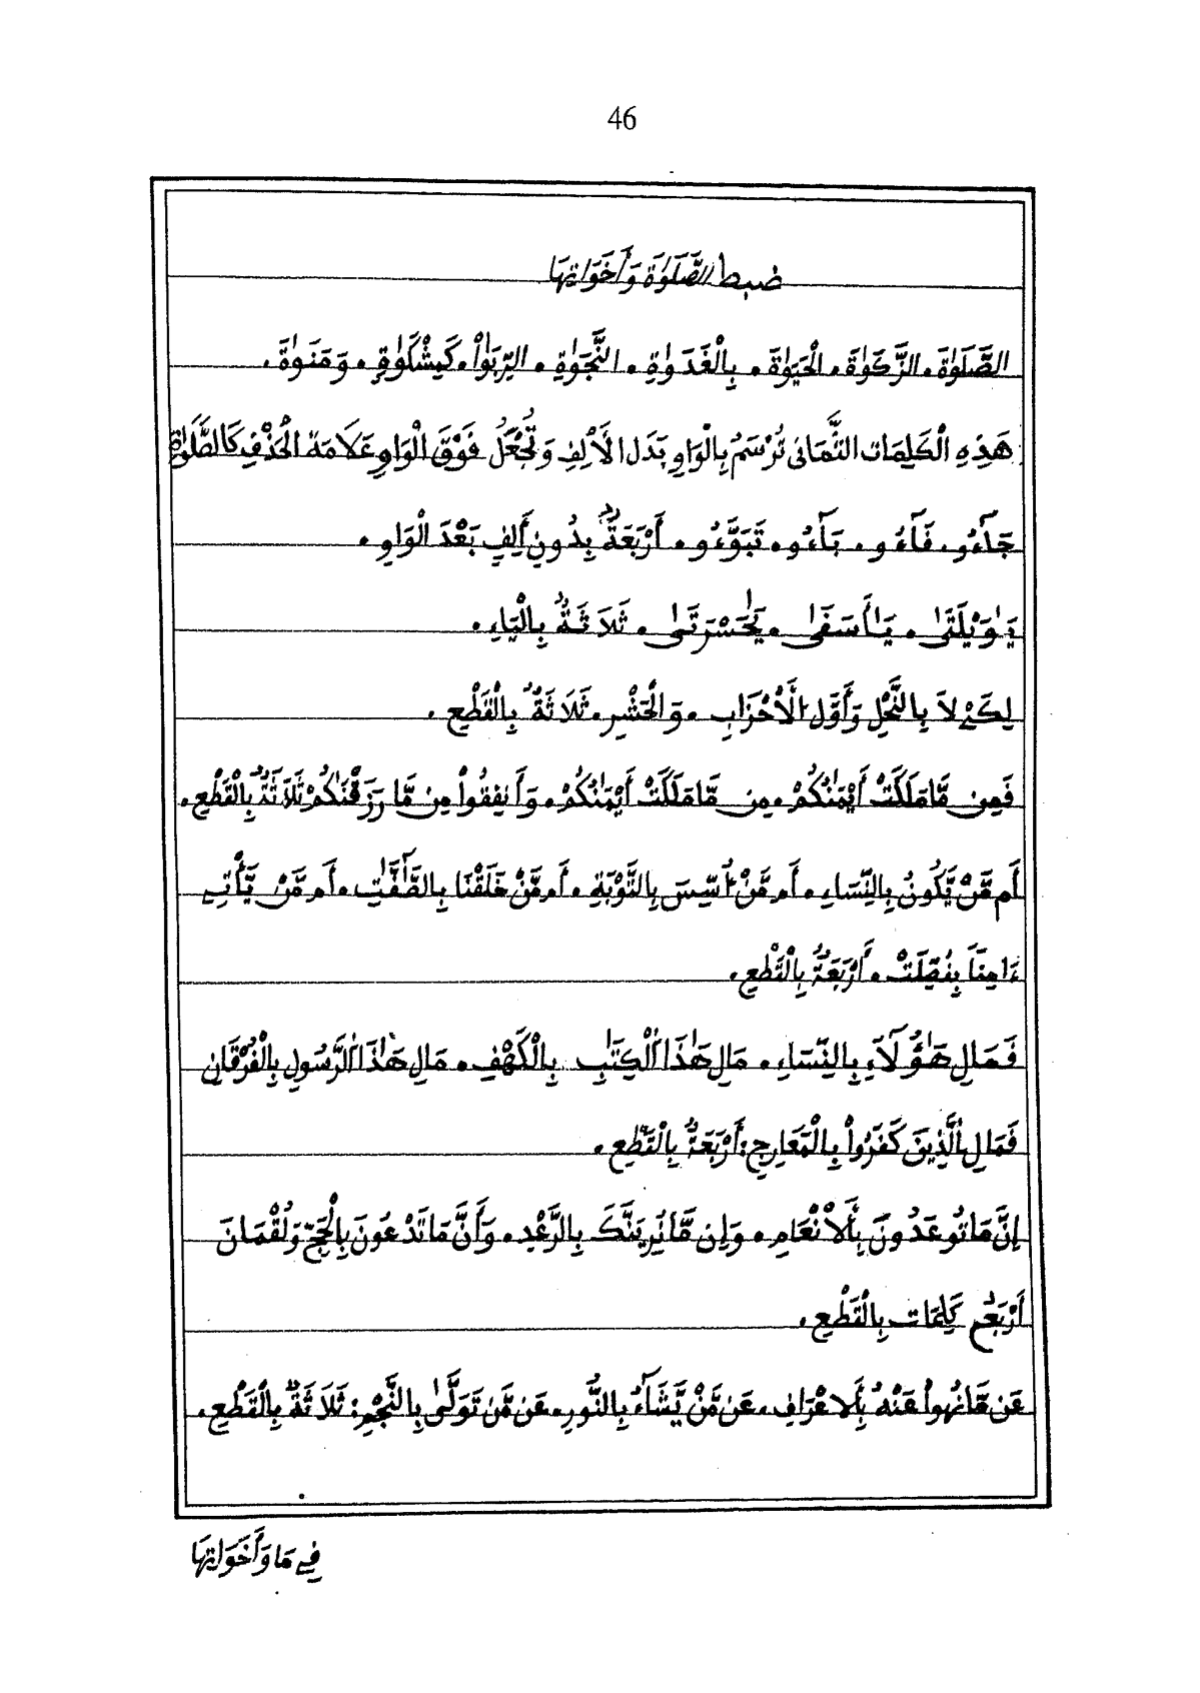 46
ضبط الصَّلَوٰة وَأَخَوَاتِهَا
الصَّلَوٰةَ. الزَّكَوٰةَ. الْحَيَوٰةَ. بِالْغَدَوٰةِ. النَّجَوٰةِ. الرِّبَوٰاْ. كَمِشْكَوٰةٍ. وَمَنَوٰةَ.
هَذِهِ الْكَلِمَات الثَّمَانِى تُرْسَمُ بِالْوَاوِ بَدَلَ الْأَلِفِ وَتُجْعَلُ فَوْقَ الْوَاوِ عَلَامَةُ الْحَذْفِ كَالصَّلَوٰةِ
جَآءُو. فَآءُو. بَآءُو. تَبَوَّءُو. أَرْبَعَةٌ بِدُونِ أَلِفٍ بَعْدَ الْوَاوِ.
يَٰوَيْلَتَىٰ. يَٰأَسَفَىٰ. يَٰحَسْرَتَىٰ. ثَلَاثَةٌ بِالْيَاءِ.
لِكَىْ لَا بِالنَّحْلِ وَأَوَّلِ الْأَحْزَابِ. وَالْحَشْرِ. ثَلَاثَةٌ بِالْقَطْعِ.
فَمِن مَّا مَلَكَتْ أَيْمَٰنُكُمْ. مِن مَّا مَلَكَتْ أَيْمَٰنُكُمْ. وَأَنفِقُواْ مِن مَّا رَزَقْنَٰكُمْ ثَلَاثَةٌ بِالْقَطْعِ.
أَم مَّنْ يَّكُونُ بِالنِّسَاءِ. أَم مَّنْ أُسِّسَ بِالتَّوْبَةِ. أَم مَّنْ خَلَقْنَا بِالصَّٰٓفَّٰتِ. أَم مَّنْ يَّأْتِے
ءَامِناً بِفُصِّلَتْ. أَرْبَعَةٌ بِالْقَطْعِ.
فَمَالِ هَٰؤُلَآءِ بِالنِّسَاءِ. مَالِ هَٰذَا اَلْكِتَٰبِ بِالْكَهْفِ. مَالِ هَٰذَا اَلرَّسُولِ بِالْفُرْقَانِ
فَمَالِ اِلَّذِينَ كَفَرُواْ بِالْمَعَارِجِ: أَرْبَعَةٌ بِالْقَطْعِ.
إِنَّ مَا تُوعَدُونَ بِالْأَنْعَامِ. وَإِن مَّا نُرِيَنَّكَ بِالرَّعْدِ. وَأَنَّ مَا تَدْعُونَ بِالْحَجِّ وَلُقْمَانَ
أَرْبَعُ كَلِمَات بِالْقَطْعِ.
عَن مَّا نُهُواْ عَنْهُ بِالاَعْرَافِ. عَن مَّنْ يَّشَآءُ بِالنُّورِ. عَن مَّن تَوَلَّىٰ بِالنَّجْمِ: ثَلَاثَةٌ بِالْقَطْعِ.
فِے مَا وَأَخَوَاتِهَا